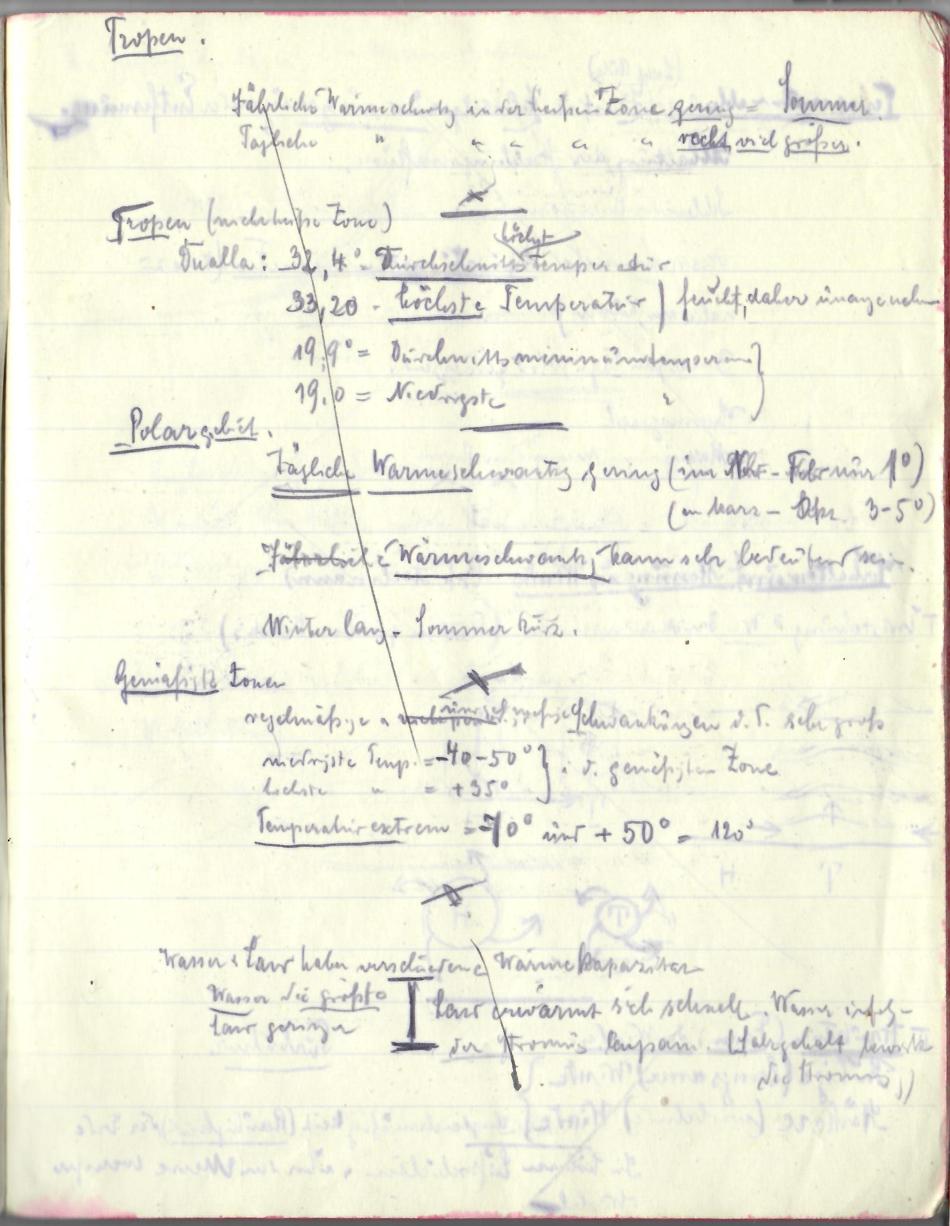 Tropen.
Jährliche Wärmeschwkg in der heißen Zone gering = Sommer.
Tägliche " " " " " recht viel größer.
Tropen (nicht heiße Zone)
höchst
Dualla: 32,4° - Durchschnittstemperatur
33,20 - höchste Temperatur } feucht, daher unangenehm
19,9° = Durchnittsminimumtemperam }
19,0 = Niedrigste "
Polargebiet.
Tägliche Wärmeschwankg gering (im Nbr - Febr nur 1°)
(im März - Sept. 3-5°)
Jährliche Wärmeschwank, kann sehr bedeutend sein.
Winter lang - Sommer kurz.
Gemäßigte Zonen
regelmäßige u Schwankungen d. T. sehr groß
niedrigste Temp. = -40-50° } i. d. gemäßigten Zone
höchste " = +35°
Temperaturextrem = -70° und + 50° = 120°
Wasser u Land haben verschiedene Wärmekapazität
Wasser die größte
Land geringer
Land erwärmt sich schnell. Wasser infolge
der Strömung langsam. (Salzgehalt bewirkt
die Strömung,)